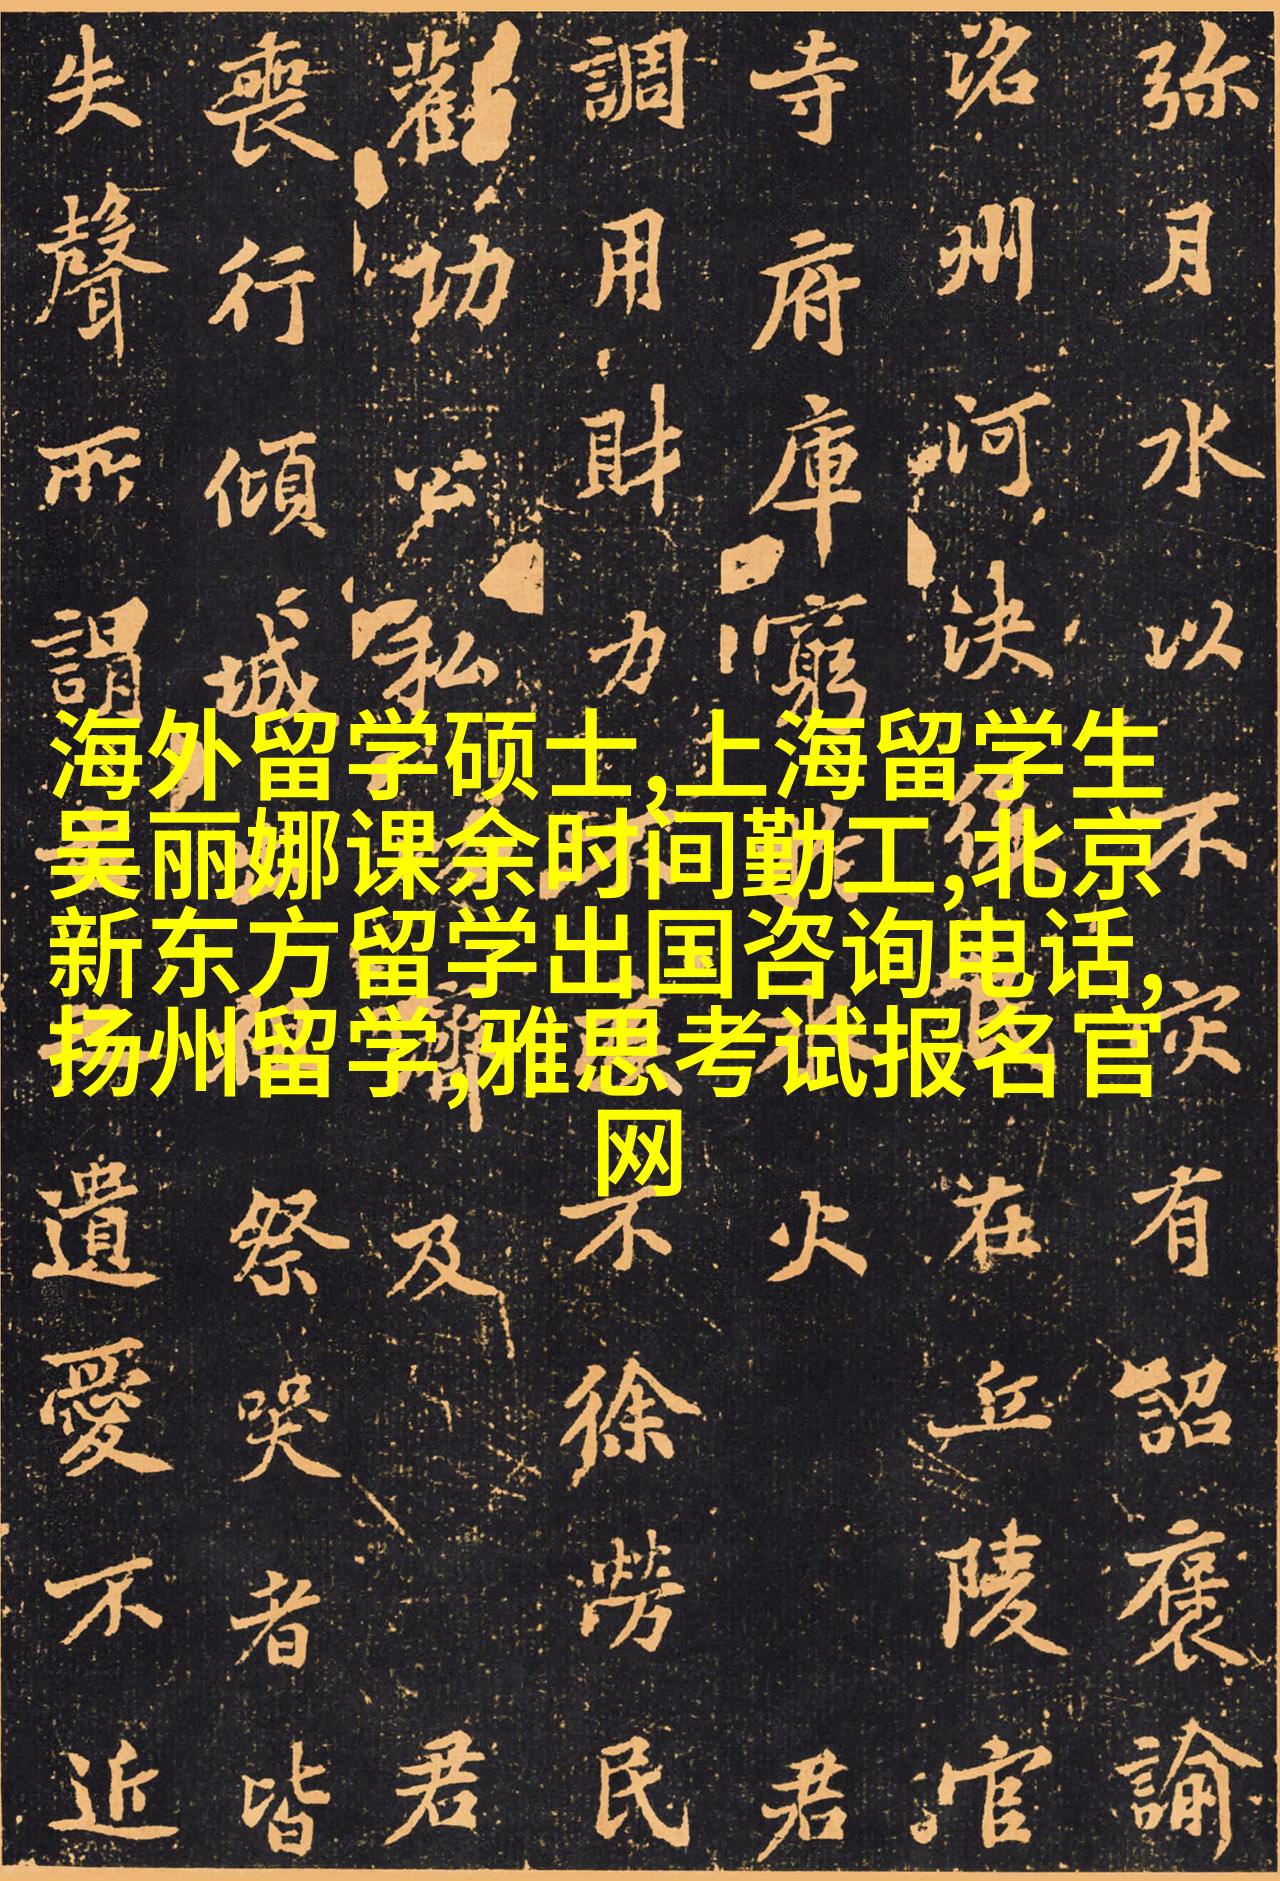 弥月水以不灾有詔褒諭
洺州河決在丘陵官
寺府庫窮水火君
調用財力不徐勞民
勸功公私濟及君
喪行傾城祭哭者皆
失聲所謂遺愛不近
海外留学硕士,上海留学生
吴丽娜课余时间勤工,北京
新东方留学出国咨询电话,
扬州留学,雅思考试报名官
网